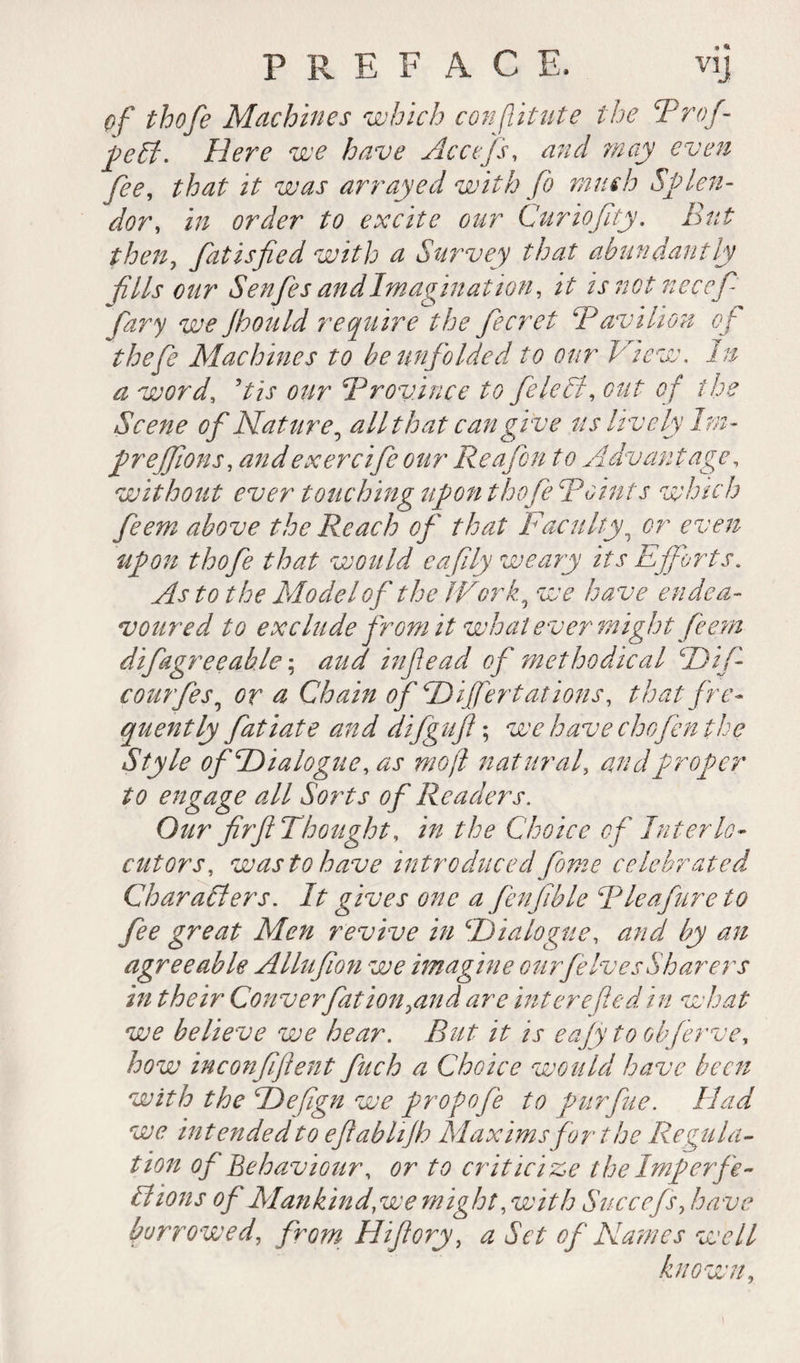 PREFACE. vij
of thoſe Machines which conſtitute the Proſ-
pect. Here we have Acceſs, and may even
ſee, that it was arrayed with ſo much Splen-
dor, in order to excite our Curioſity. But
then, ſatisfied with a Survey that abundantly
fills our Senſes and Imagination, it is not neceſ-
ſary we ſhould require the ſecret Pavilion of
theſe Machines to be unfolded to our View. In
a word, 'tis our Province to ſelect, out of the
Scene of Nature, all that can give us lively Im-
preſſions, and exerciſe our Reaſon to Advantage,
without ever touching upon thoſe Points which
ſeem above the Reach of that Faculty, or even
upon thoſe that would eaſily weary its Efforts.
As to the Model of the Work, we have endea-
voured to exclude from it whatever might ſeem
diſagreeable; and inſtead of methodical Diſ-
courſes, or a Chain of Diſſertations, that fre-
quently ſatiate and diſguſt; we have choſen the
Style of Dialogue, as moſt natural, and proper
to engage all Sorts of Readers.
Our firſt Thought, in the Choice of Interlo-
cutors, was to have introduced ſome celebrated
Characters. It gives one a ſenſible Pleaſure to
ſee great Men revive in Dialogue, and by an
agreeable Alluſion we imagine ourſelves Sharers
in their Converſation, and are intereſted in what
we believe we hear. But it is eaſy to obſerve,
how inconſiſtent ſuch a Choice would have been
with the Deſign we propoſe to purſue. Had
we intended to eſtabliſh Maxims for the Regula-
tion of Behaviour, or to criticize the Imperfe-
ctions of Mankind, we might, with Succeſs, have
borrowed, from Hiſtory, a Set of Names well
known,